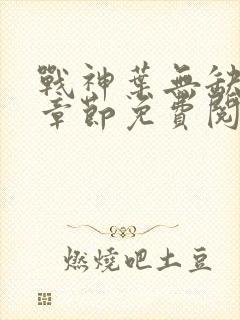 戰神葉無缺
章節免費閱
燃燒吧土豆